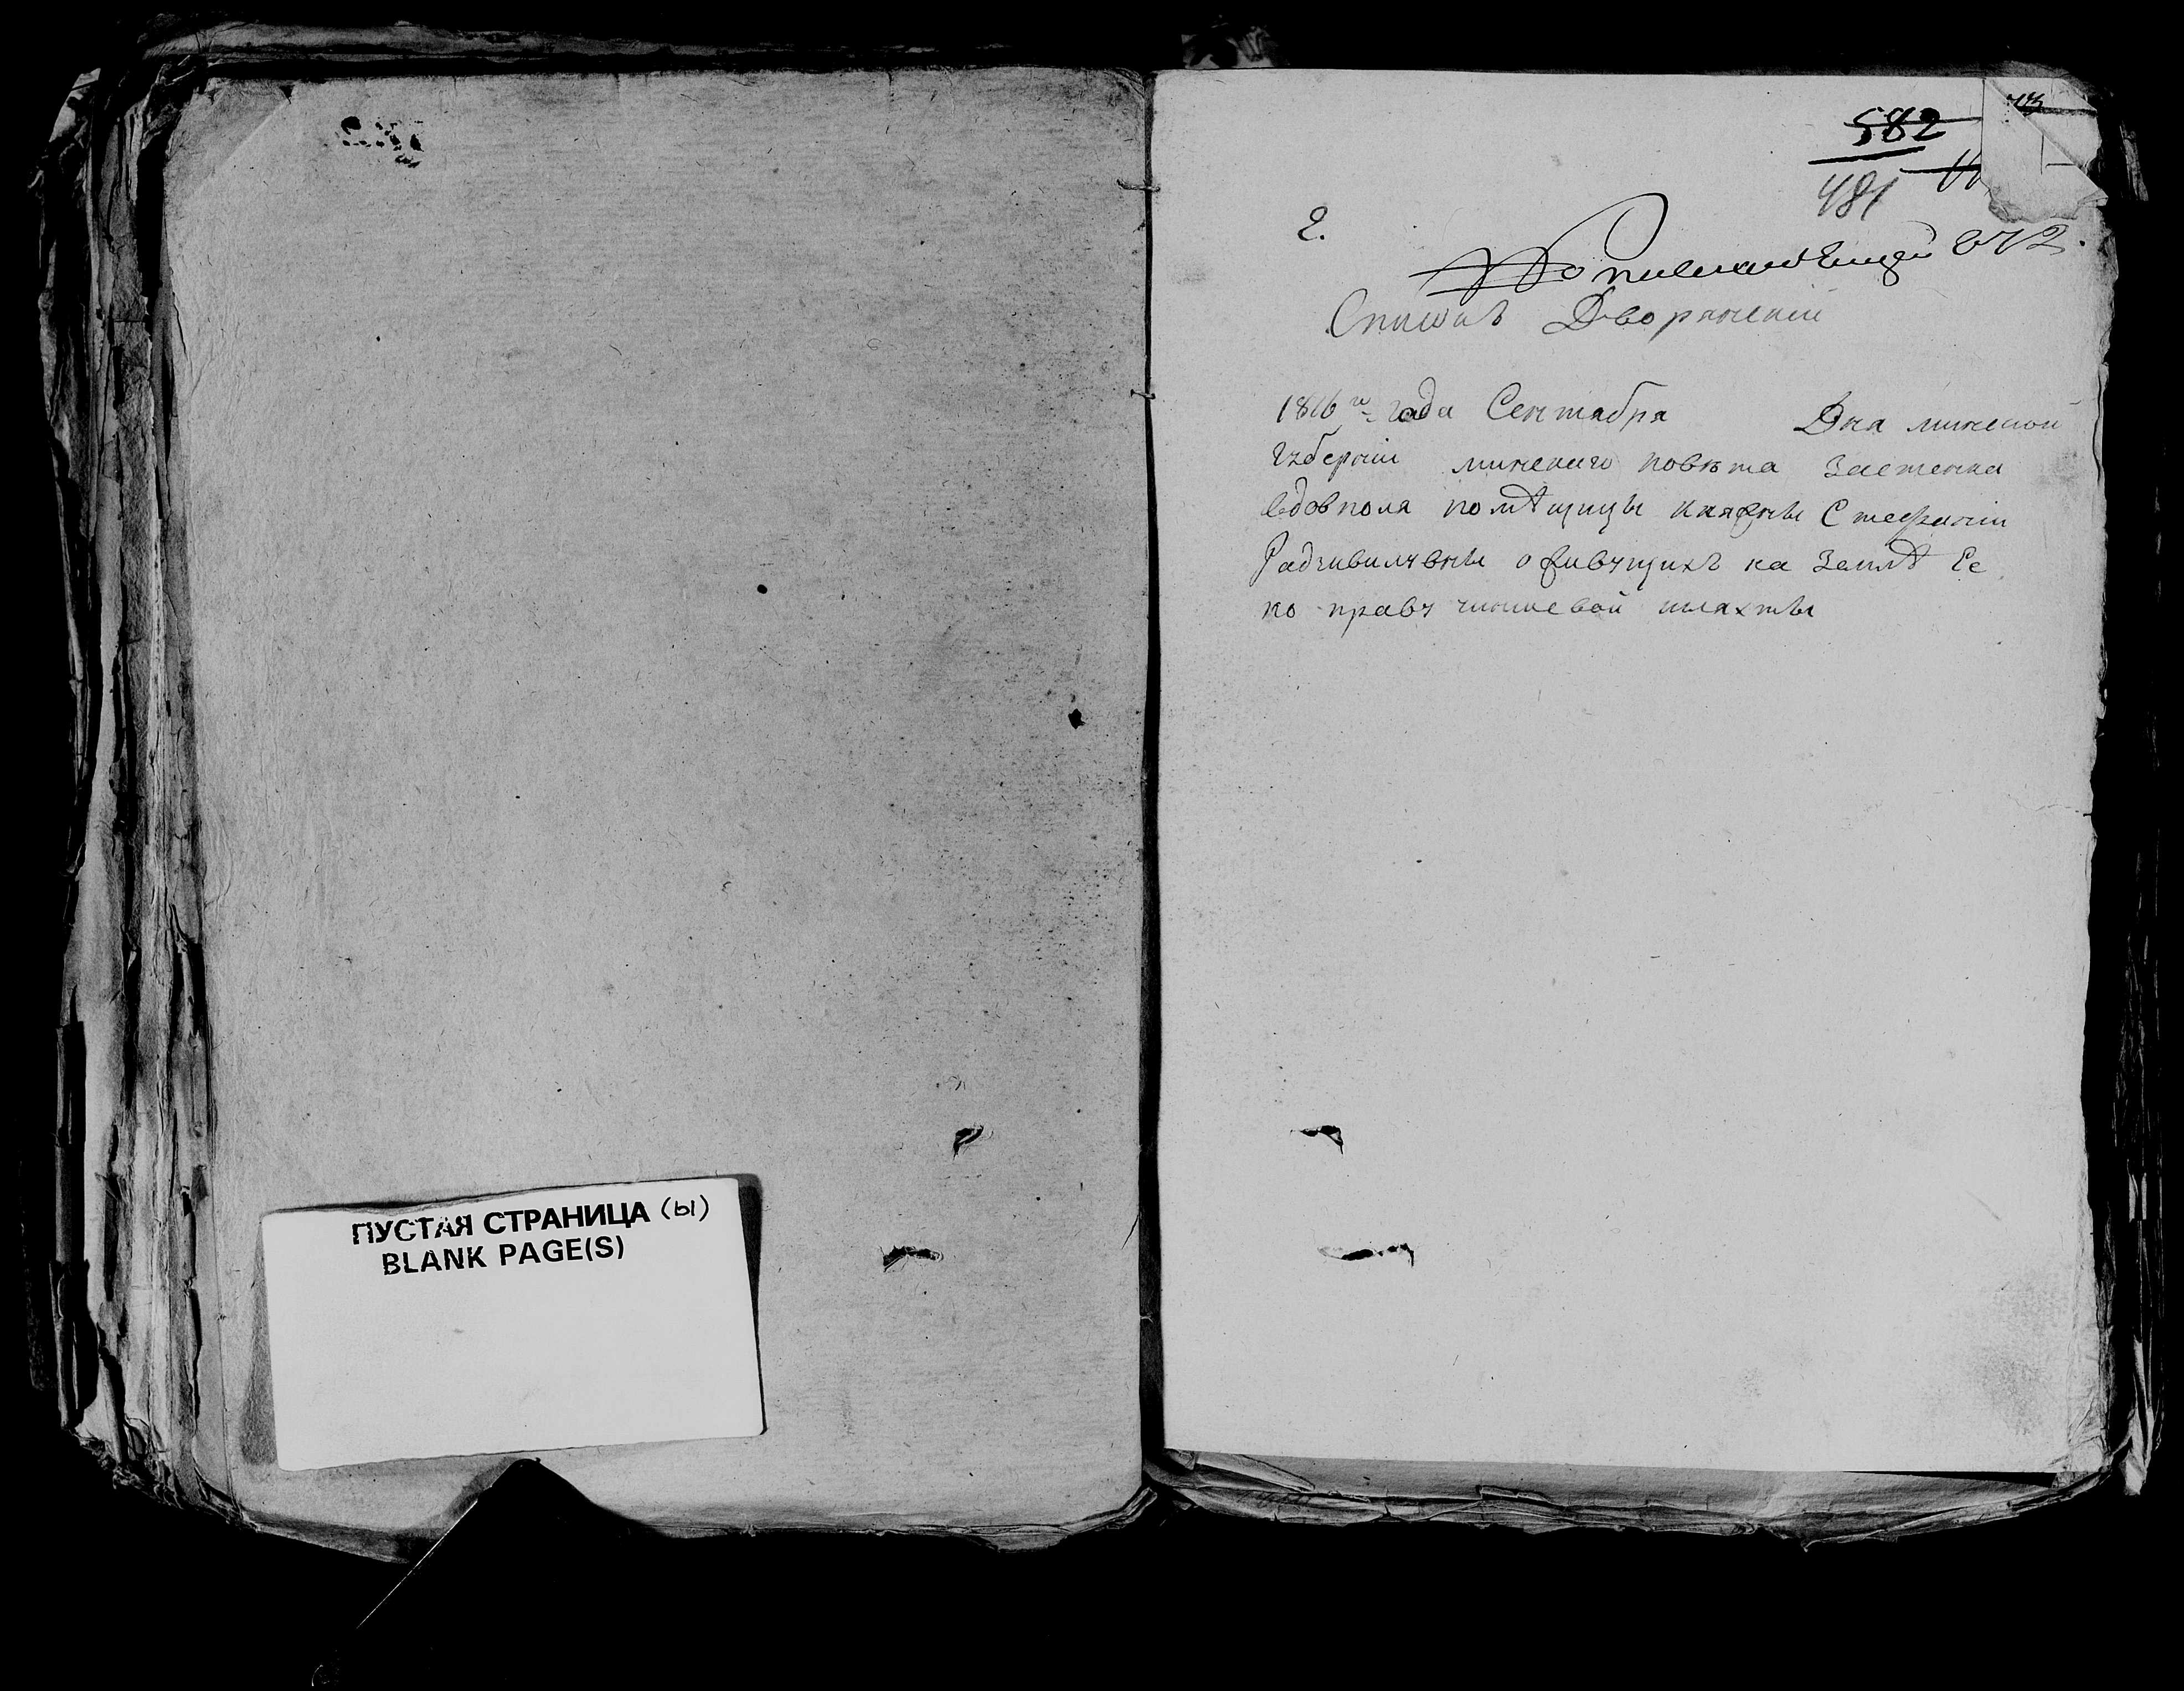 ПУСТАЯ СТРАНИЦА (ы)
BLANK PAGE(S)
582
481
2.
872.
Списокъ Дворянскій
1816го года Сентября Дня минской
губерніи минскаго повѣта Застенка
вдовполя помѣщицы княжны Стефаніи
Радзивиловны о живущихъ на Землѣ Ее
по праву чиншевой шляхты